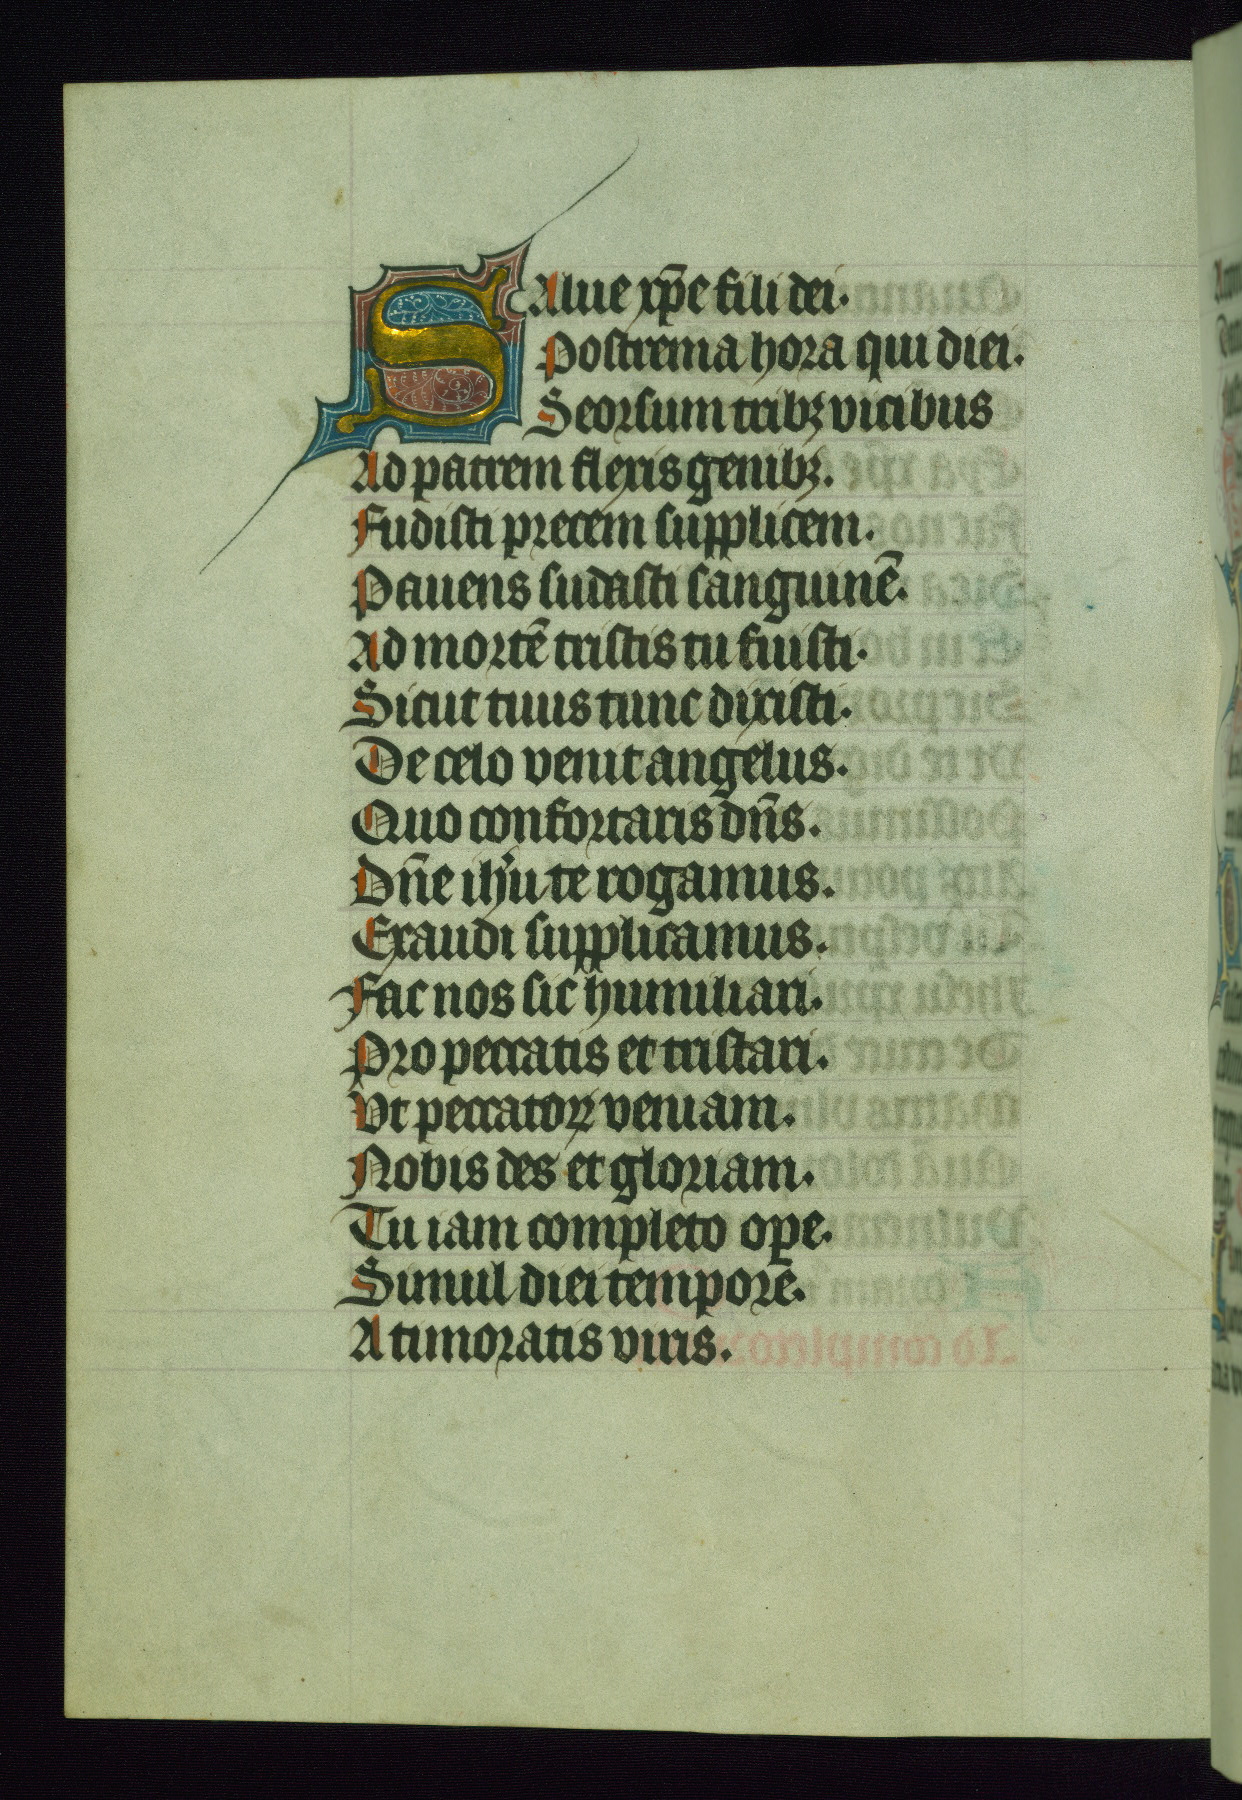 Salue xp̄e fili dei.
Postrema hora qui diei.
Seorsum tribꝫ vicibus
Ad patrem flexis genibꝫ.
Fudisti precem supplicem.
Pauens sudasti sanguinē.
Ad mortē tristis tu fuisti.
Sicut tuus tunc dixisti.
De celo venit angelus.
Quo confortaris dn̄s.
Dn̄e ihū te rogamus.
Exaudi supplicamus.
Fac nos sic humiliari.
Pro peccatis et tristari.
Vt peccatoꝝ veniam.
Nobis des et gloriam.
Tu iam completo ope.
Simul diei tempore.
A timoratis viris.